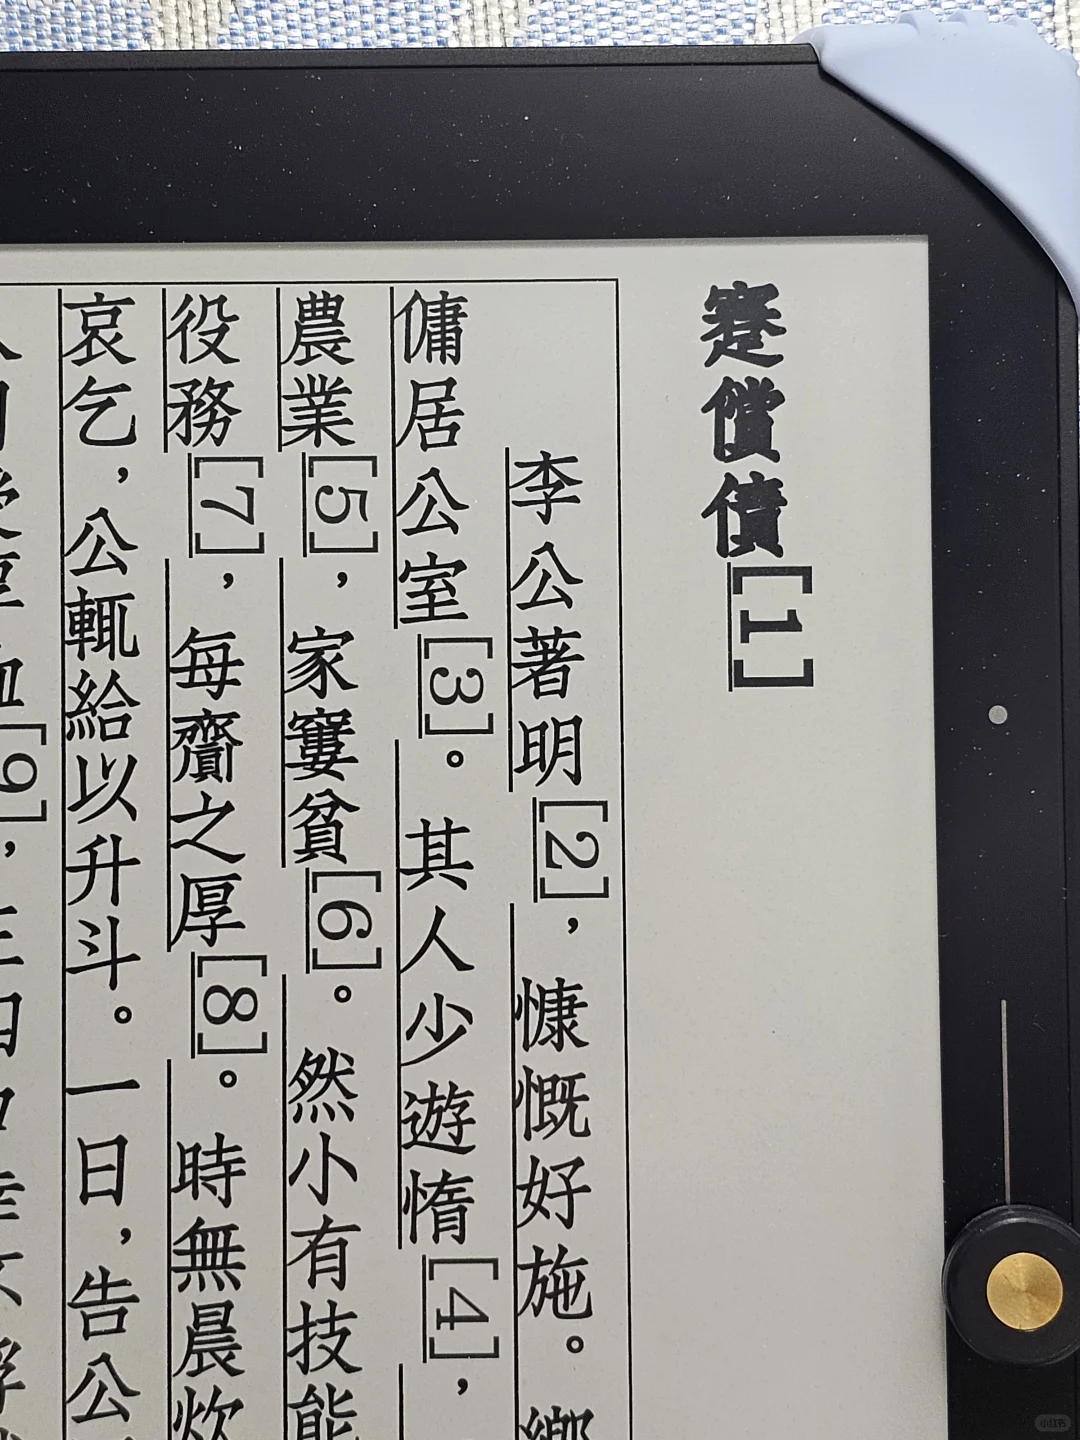 蹇償債[1]
李公著明[2]，慷慨好施。
傭居公室[3]。其人少遊惰[4]，
農業[5]，家窶貧[6]。然小有技能
役務[7]，每齎之厚[8]。時無晨炊
哀乞，公輒給以升斗。一日，告公
[9]，
小红书